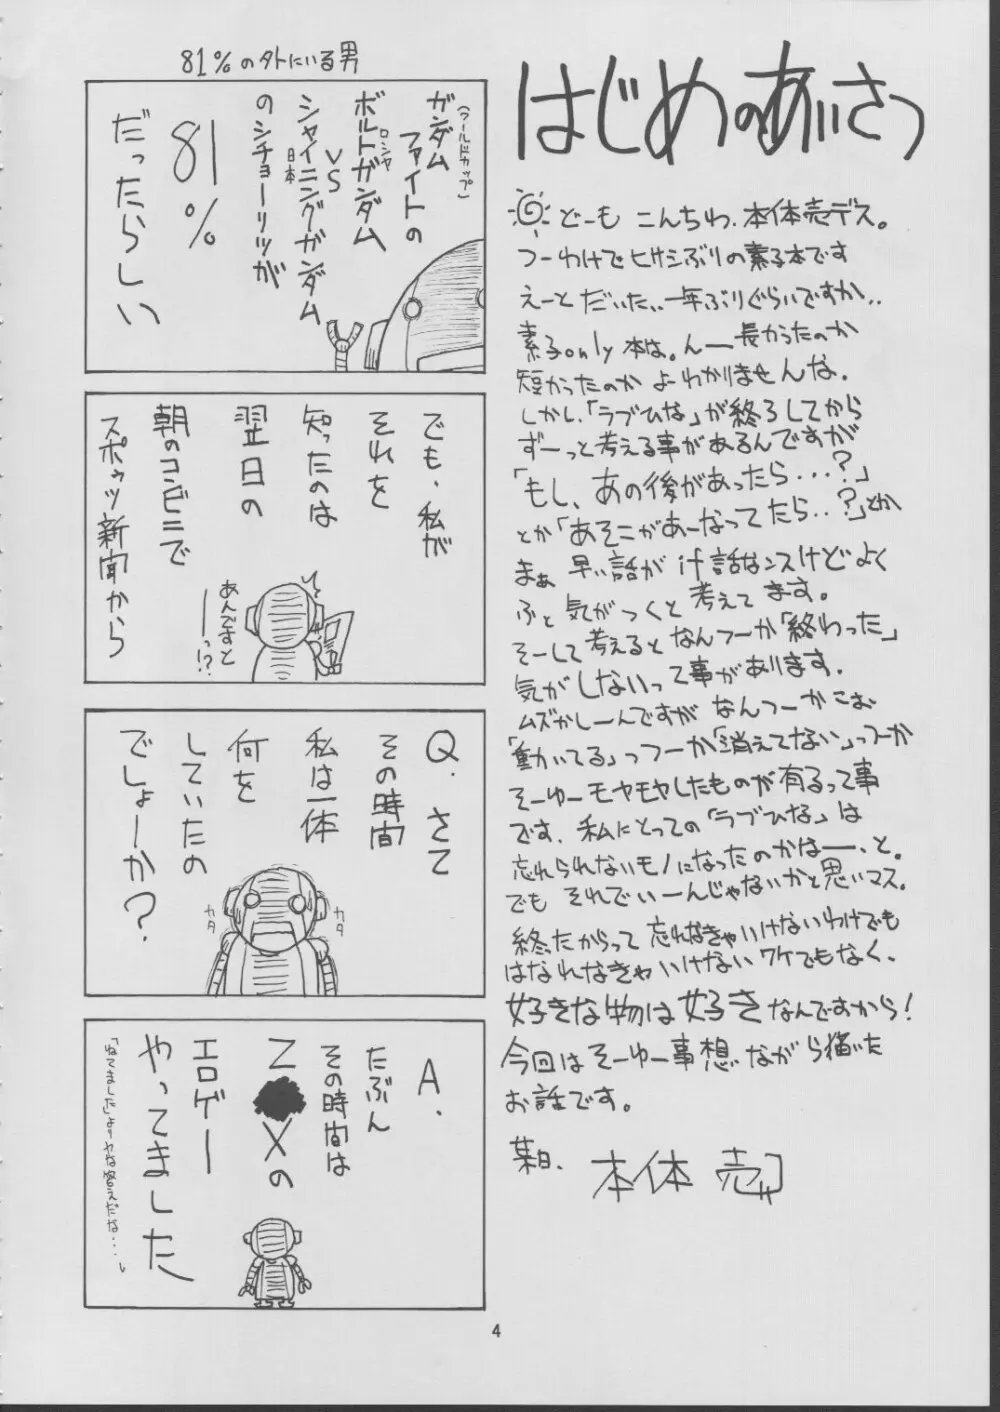 はじめのあいさつ
どーも こんちわ、本体売デス。
つーわけでヒサシぶりの素子本です
えーと だいたい、一年ぶりぐらいですか、、
素子only本は。んー長かったのか
短かったのか よーわかりませんな。
しかし、「ラブひな」が終了してから
ずーっと考える事があるんですが
「もし、あの後があったら・・・?」
とか「あそこがあーなってたら・・?」とか
まぁ 早い話がif話なンスけどよく
ふと気がつくと考えてます。
そーして考えるとなんつーか「終わった」
気がしないって事があります。
ムズかしーんですが なんつーかこお
「動いてる」っつーか「消えてない」っつーか
そーゆーモヤモヤしたものが有るって事
です。私にとっての「ラブひな」は
忘れられないモノになったのかはー、と。
でも それでいーんじゃないかと思いマス。
終ったからって 忘れなきゃいけないわけでも
はなれなきゃいけないワケでもなく、
好きな物は好きなんですから!
今回はそーゆー事想いながら描いた
お話です。
某日、 本体 売
81%のソトにいる男
(ワールドカップ)
ガンダム
ファイトの
ロシヤ
ボルトガンダム
VS
シャイニングガンダム
日本
のシチョーリツが
81%
だったらしい
でも、私が
それを
知ったのは
翌日の
朝のコンビニで
スポゥツ新聞から
あんですと
ーっ!?
Q.さて
その時間
私は一体
何を
していたの
でしょーか?
カタ
カタ
A.
たぶん
その時間は
Z Xの
エロゲー
やってました
「ねてました」よりヤな答えだな・・・
4